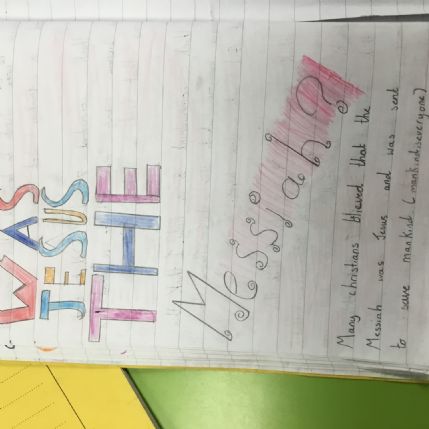 WAS
JESUS
THE
Messiah?
Many christians blieved that the
Messiah was Jesus and was sent
to save mankind (mankind=everyone)